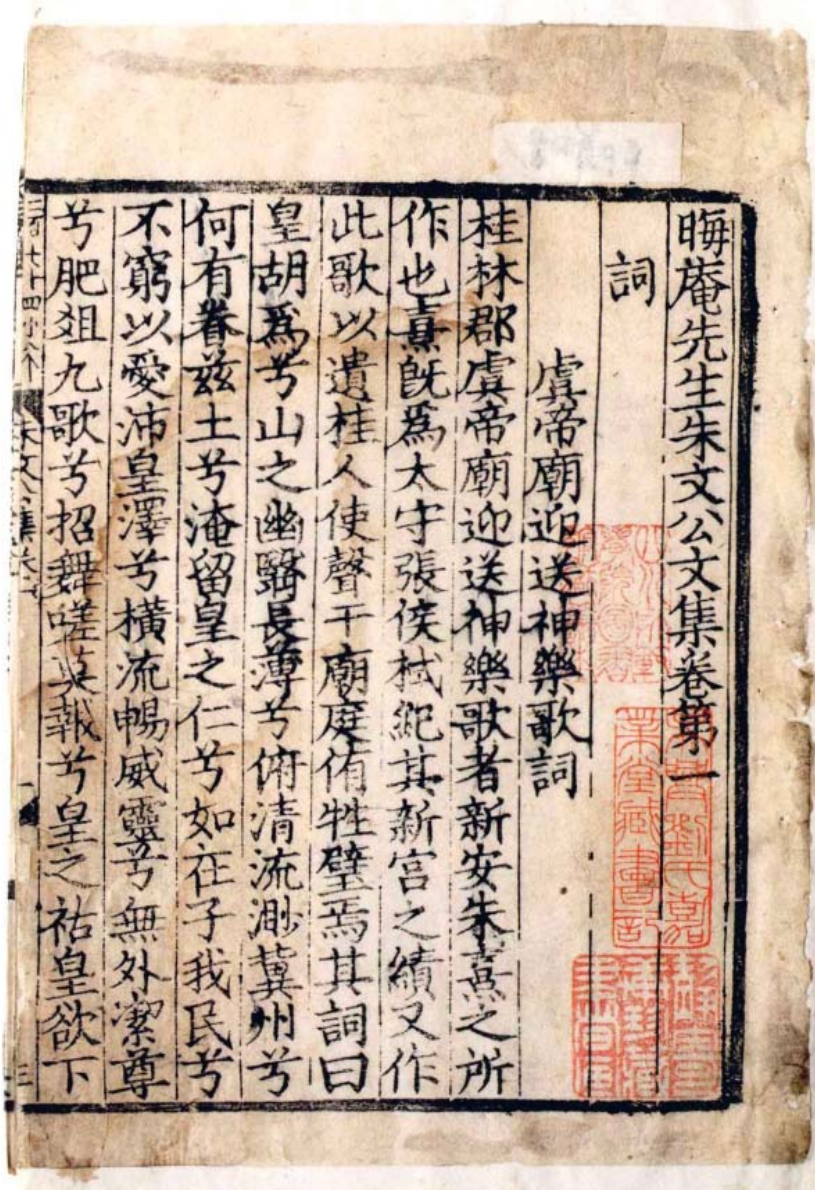 晦庵先生朱文公文集卷第一
詞
虞帝廟迎送神樂歌詞
桂林郡虞帝廟迎送神樂歌者新安朱熹之所
作也熹旣爲太守張侯栻紀其新宮之績又作
此歌以遺桂人使聲于廟庭侑牲璧焉其詞曰
皇胡爲兮山之幽翳長薄兮俯清流渺冀州兮
何有眷兹土兮淹留皇之仁兮如在子我民兮
不窮以愛沛皇澤兮橫流暢威靈兮無外潔尊
兮肥俎九歌兮招舞嗟莫報兮皇之祜皇欲下